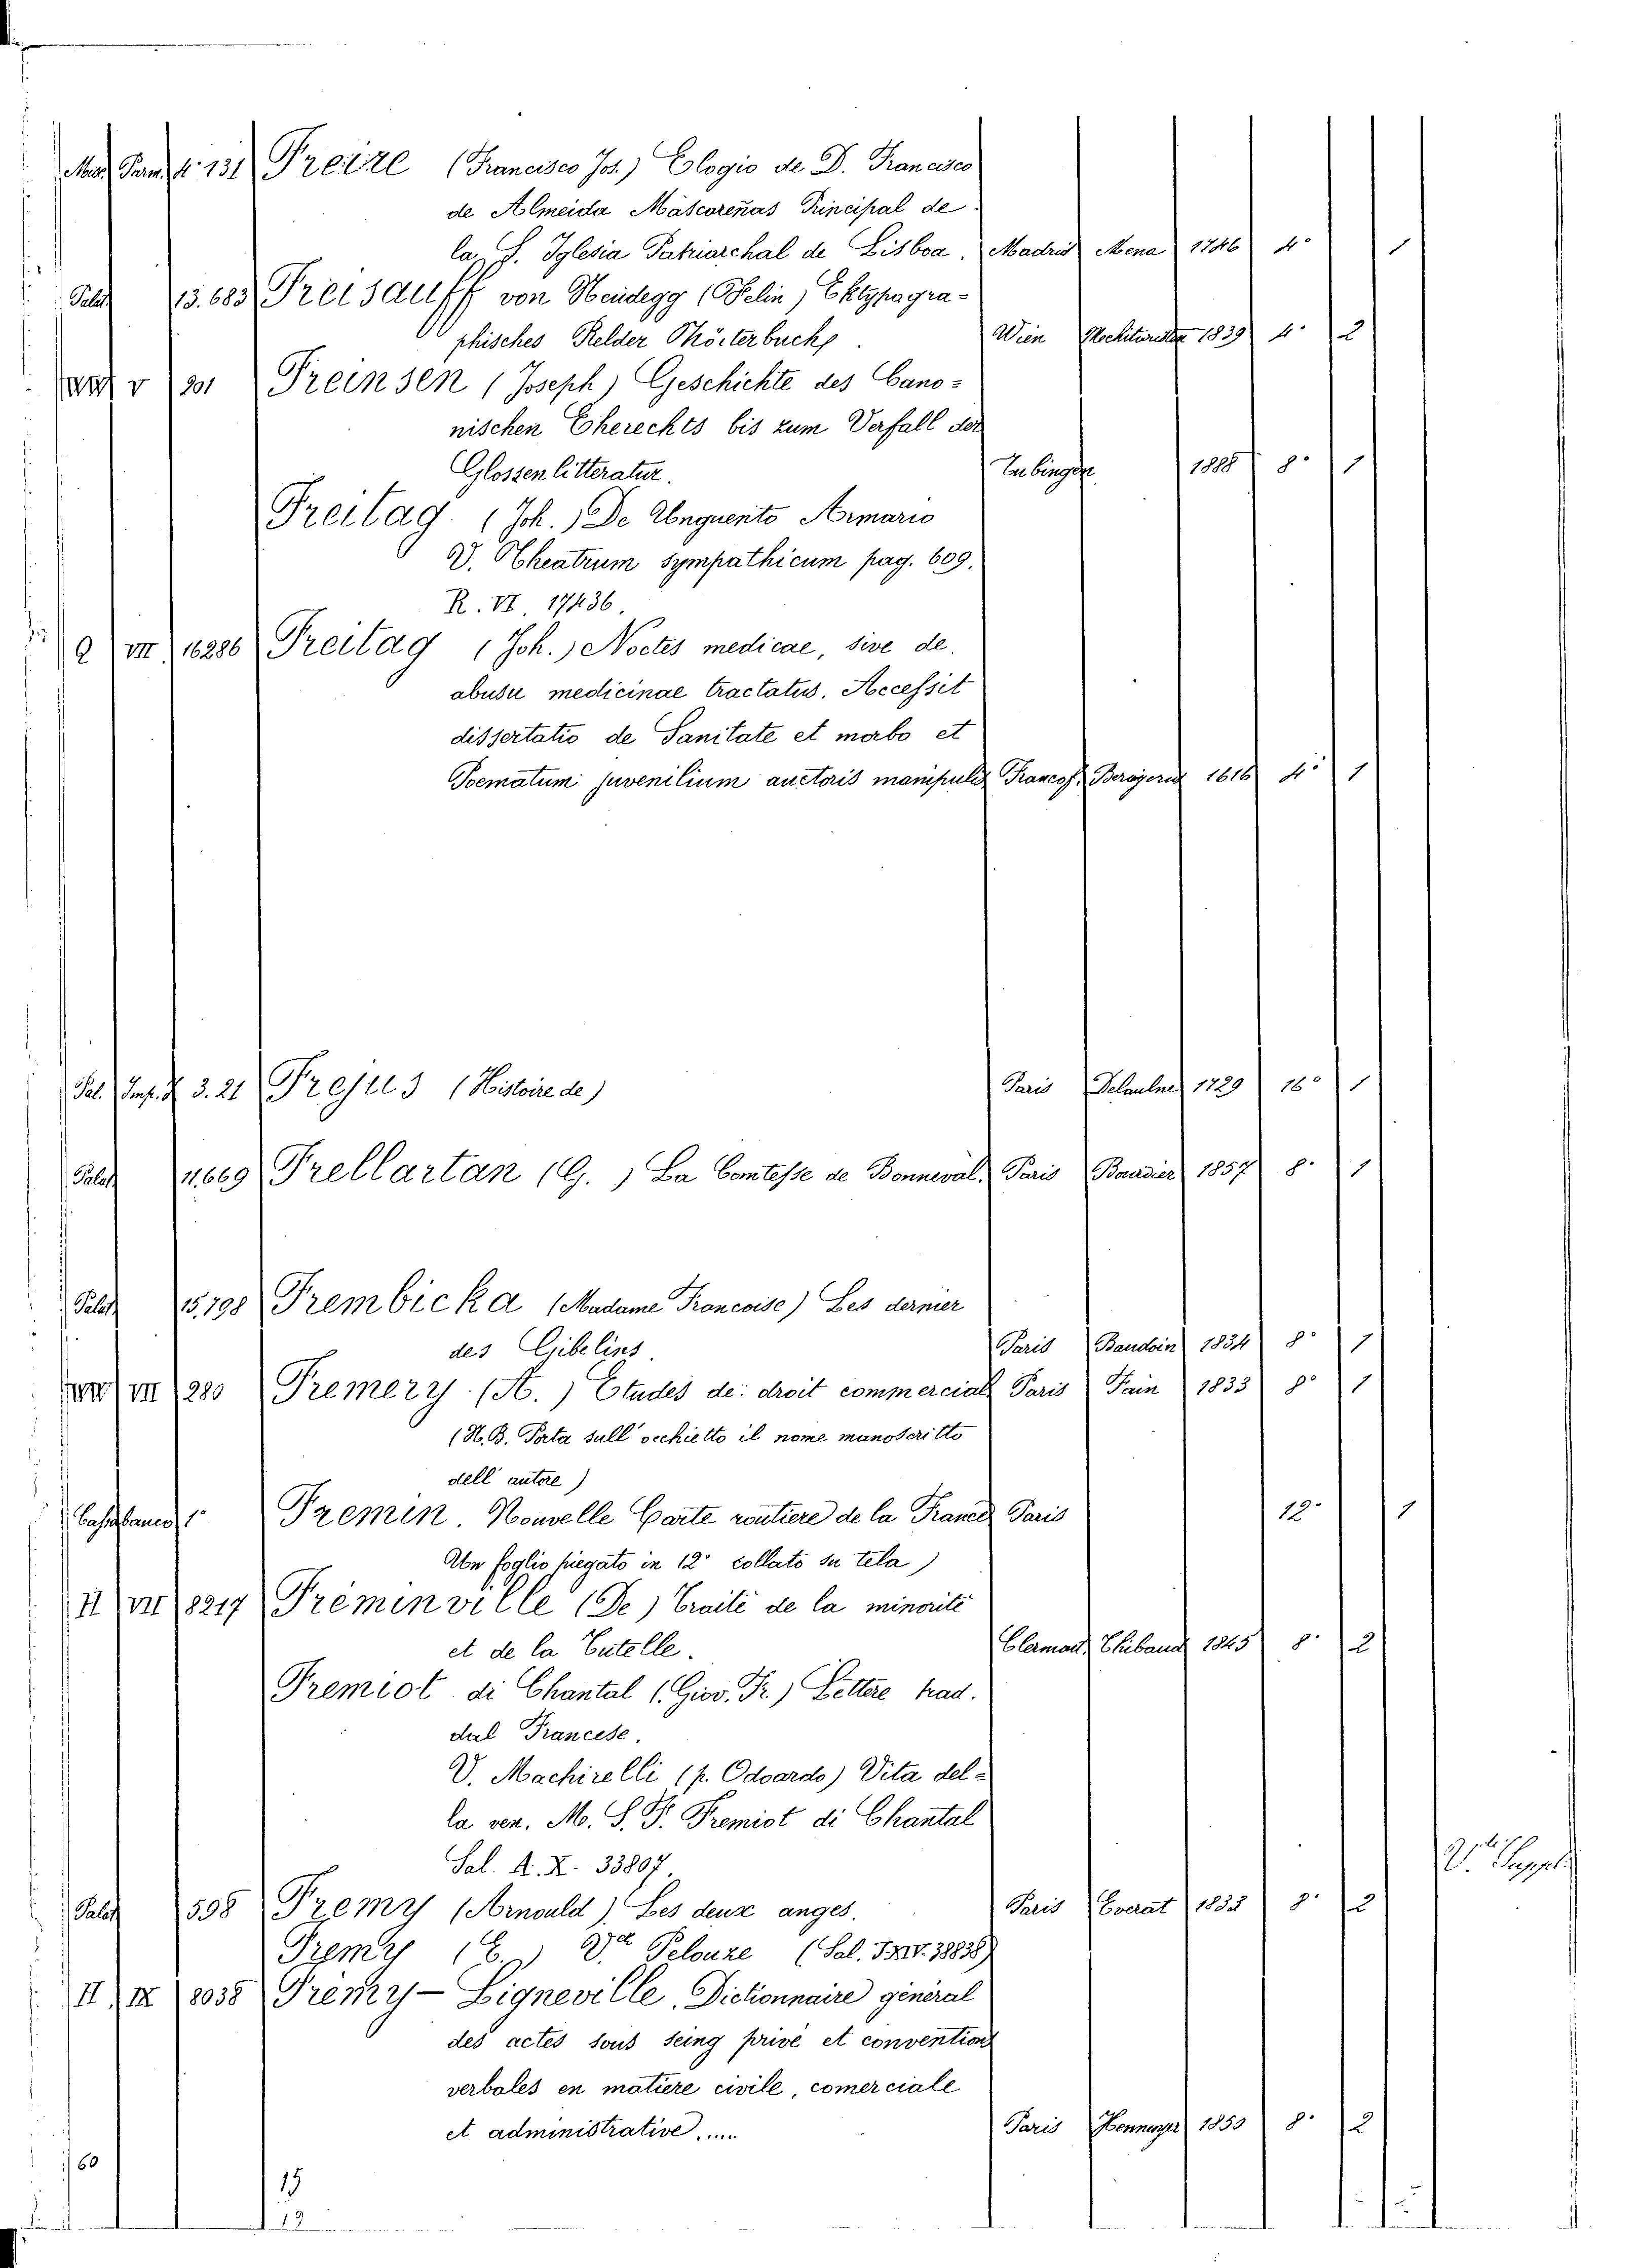 Misc. Parm. 4° 131 Freire (Francisco Jos.) Eologio de D. Francisco
de Almeida Máscoreñas Principal de
la S. Iglesia Patriarchal de Lisboa. Madrid Mena 1746 4° 1
Palat 13.683 Freisauff von Neudegg Ektypogra-
phisches Bilder Wörterbuch. Wien Mechitaristen 1839 4° 2
V 201 Freinsen (Joseph) Geschichte des Cano-
nischen Eherechts bis zum Verfall der
Glossenlitteratur. Tubingen 1888 8° 1
Freitag. (Joh.) De Unguento Armario
V. Theatrum sympathicum pag. 609.
R. VI. 17436.
Q VIII 16286 Freitag (Joh.) Noctes medicae, sive de
abusu medicinae tractatus. Accessit
dissertatio de Sanitate et morbo et
Poematum juvenilium auctoris manipulus Francof. 1616 4° 1
Pal. Imp. 3. 21 Frejus (Histoire de) Paris Delaulne 1729 16° 1
Palat 11.669 Frellartan (G.) La Comtesse de Bonneval. Paris Bourdier 1857 8° 1
Palat 15.798 Frembicka (Madame Francoise) Les dernier
des Gibelins. Paris Baudoin 1834 8° 1
VII 280 Fremery. (A.) Études de droit commercial Paris Fain 1833 8° 1
(N.B. Porta sull'occhietto il nome manoscritto
dell'autore)
Cassabanco 1° Fremin. Nouvelle Carte routiere de la France Paris 12° 1
Un foglio piegato in 12° collato su tela)
II VII 8217 Fréminville (De) Traité de la minorité
et de la Tutelle. Clermont, Thibaud 1845 8° 2
Fremiot di Chantal (Giov. Fr.) Lettere trad.
dal Francese.
V. Machirelli (p. Odoardo) Vita del-
la ven. M. S. F. Fremiot di Chantal
Sal. A. X. 33807.
V. Suppl.
Palat 598 Fremy (Arnould) Les deux anges. Paris Everat 1833 8° 2
Fremy (E.) Va Pelouze
II IX 8038 Frémy-Ligneville. Dictionnaire général
des actes sous seing privé et convention
verbales en matiere civile, comerciale
et administrative..... Paris Hennuyer 1850 8° 2
60
15